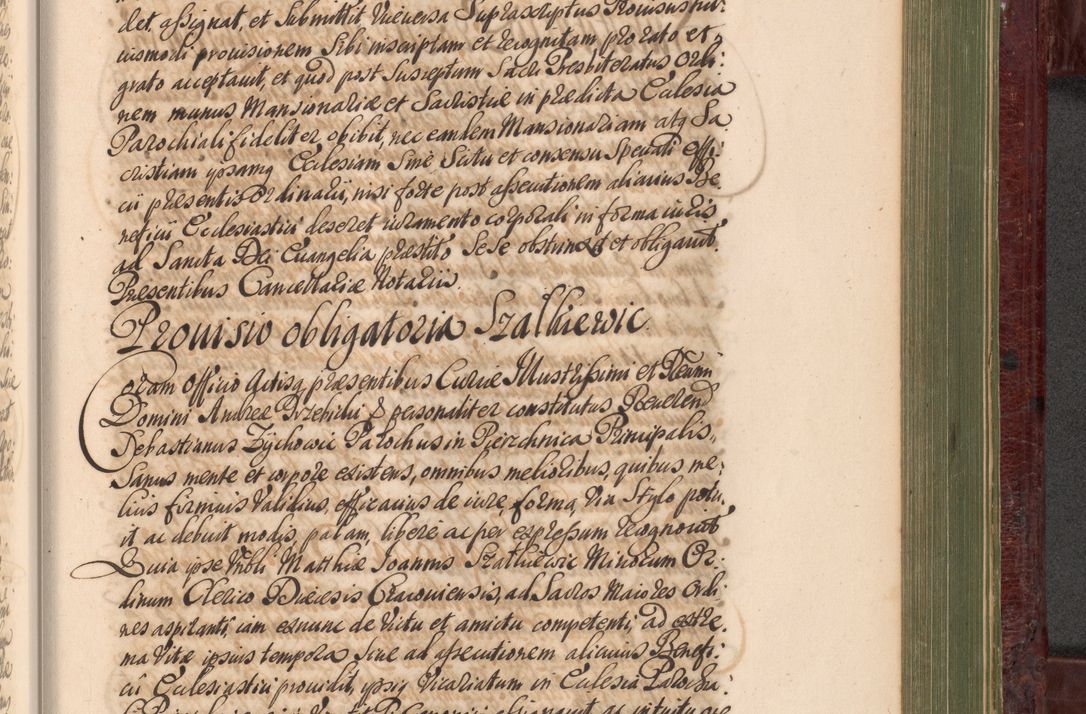 det, assignat, et Submittit. Viceversa Suprascriptus Provisus hu:
iusmodi provisionem Sibi inscriptam et recognitam, pro rato et
grato acceptavit, et quod post Susceptum Sacri Presbiteratus Ordi:
nem munus Mansionariæ et Sacristiæ in prædicta Ecclesia
Parochiali fideliter obibit, nec eamdem Mansionariam atq; Sa
cristiam ipsamq; Ecclesiam Sine Scitu et consensu Speciali offi:
cii præsentis Ordinarii, nisi forte post assecutionem alicuius Be
neficii Ecclesiastici deseret iuramento corporali in forma iuris
ad Sancta Dei Evangelia præstito Sese obstrinxit et obligavit.
Præsentibus Cancellariæ Notariis.
Provisio obligatoria Szalkiewic.
Coram Officio Actisq; præsentibus Curiæ Illustrissimi et Rēmi
Domini Andreæ Trzebicki & personaliter constitutus Reverend
Sebastianus Zychowic Parochus in Pierzchnica Principalis,
Sanus mente et corpore existens, omnibus melioribus, quibus me:
lius firmius validius, efficacius de iure, forma, via Stylo potu
it ac debuit modis, palam, libere ac per expressum recognovit
Quia ipse Nobli Matthiæ Joannis Szalkiewic Minorum Or:
dinum Clerico Diæcesis Cracoviensis, ad Sacros Maiores Ordi
nes aspiranti, iam exnunc de victu et amictu competenti, ad extre:
ma vitæ ipsius tempora Sive ad assecutionem alicuius Benefi:
cii Ecclesiastici providit, ipsiq; Vicariatum in Ecclesia Parochia: